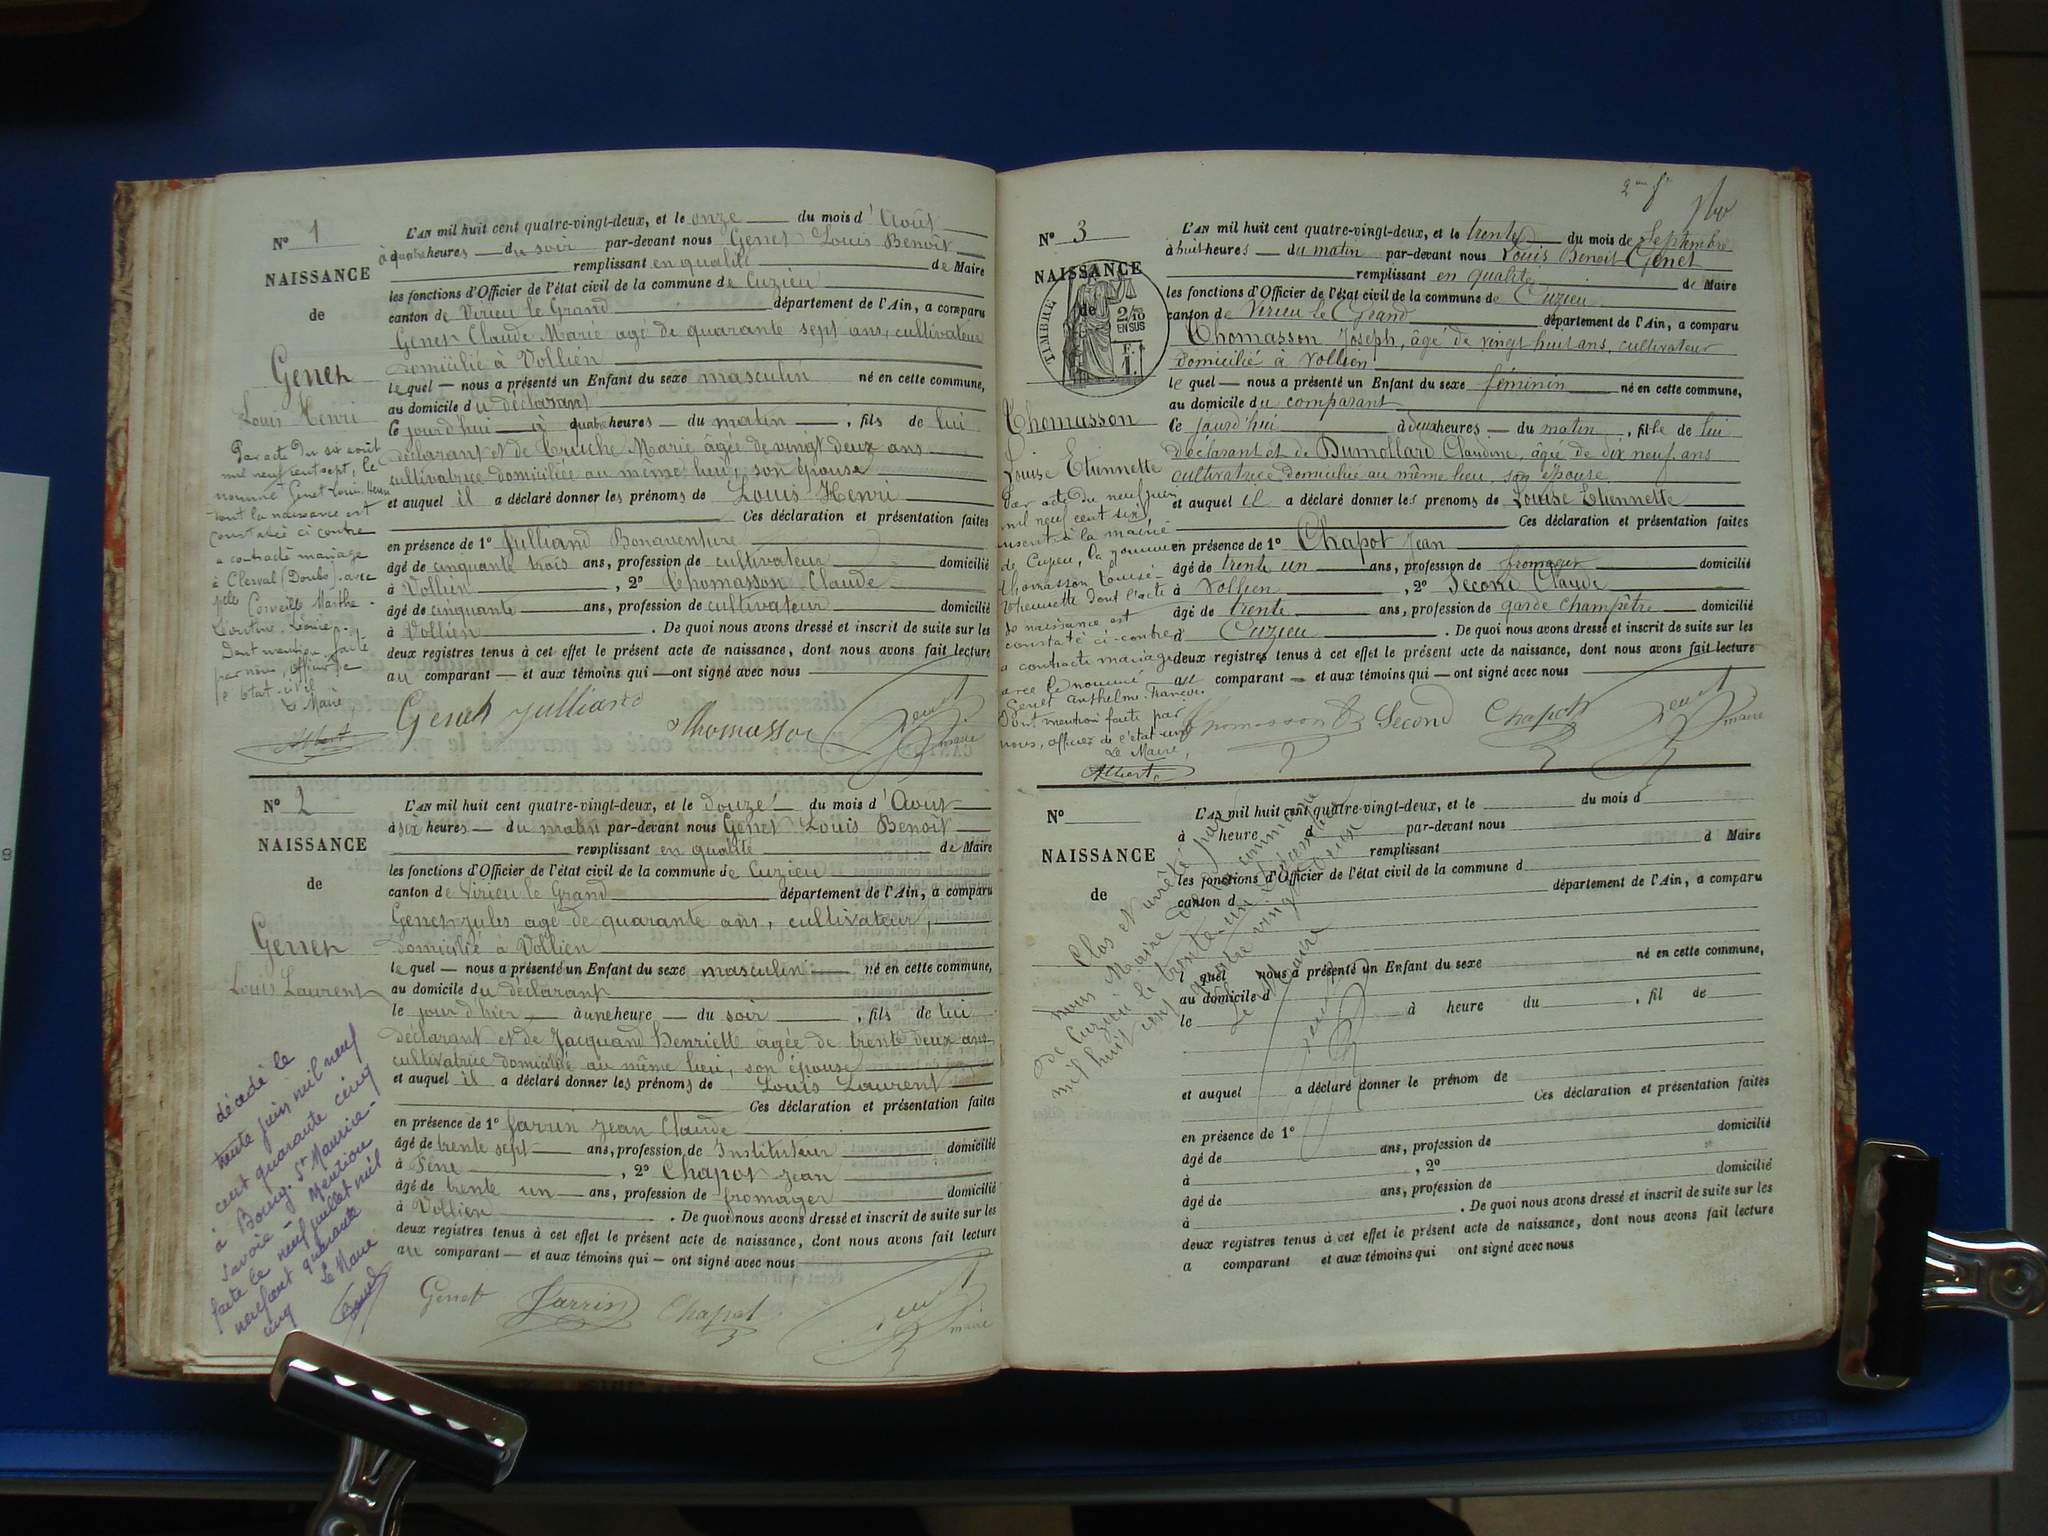 Nº 1
NAISSANCE
de
Genet
Louis Henri
Par acte du six août
mil neuf cent sept, le
nommé Genet Louis Henri
dont la naissance est
constatée ci contre
a contracté mariage
à Clerval (Doubs) avec
Marthe
Léonie
Dont mention faite
par nous, officier de
l'état-civil
Le Maire,
Albert
L'AN mil huit cent quatre-vingt-deux, et le onze du mois d'Août
à quatre heures du soir par-devant nous Genet Louis Benoît
remplissant en qualité de Maire
les fonctions d'Officier de l'état civil de la commune de Cuzieu
canton de Virieu le Grand département de l'Ain, a comparu
Genet Claude Marie agé de quarante sept ans, cultivateur
domicilié à Vollien
lequel — nous a présenté un Enfant du sexe masculin né en cette commune,
au domicile du déclarant
ce jourd'hui à quatre heures — du matin —, fils de lui
déclarant et de Cruche Marie âgée de vingt deux ans
cultivatrice domiciliée au même lieu, son épouse
et auquel il a déclaré donner les prénoms de Louis Henri
Ces déclaration et présentation faites
en présence de 1º Julliand Bonaventure
âgé de cinquante trois ans, profession de cultivateur domicilié
à Vollien, 2º Thomasson Claude
âgé de cinquante ans, profession de cultivateur domicilié
à Vollien. De quoi nous avons dressé et inscrit de suite sur les
deux registres tenus à cet effet le présent acte de naissance, dont nous avons fait lecture
au comparant — et aux témoins qui — ont signé avec nous
Genet Julliand Thomasson Genet maire
Nº 2
NAISSANCE
de
Genet
Louis Laurent
décédé le
trente juin mil neuf
cent quarante cinq
à Bourg-St Maurice-
Savoie - Mention
faite le neuf juillet mil
neuf cent quarante
cinq Le Maire
L'AN mil huit cent quatre-vingt-deux, et le douze du mois d'Août
à six heures — du matin par-devant nous Genet Louis Benoît
remplissant en qualité de Maire
les fonctions d'Officier de l'état civil de la commune de Cuzieu
canton de Virieu le Grand département de l'Ain, a comparu
Genet Jules agé de quarante ans, cultivateur,
domicilié à Vollien
lequel — nous a présenté un Enfant du sexe masculin né en cette commune,
au domicile du déclarant
le jour d'hier — à une heure — du soir, fils de lui
déclarant et de Jacquand Henriette âgée de trente deux ans
cultivatrice domicilié au même lieu, son épouse
et auquel il a déclaré donner les prénoms de Louis Laurent
Ces déclaration et présentation faites
en présence de 1º Jarrin Jean Claude
âgé de trente sept ans, profession de Instituteur domicilié
à, 2º Chapot Jean
âgé de trente un — ans, profession de fromager domicilié
à Vollien. De quoi nous avons dressé et inscrit de suite sur les
deux registres tenus à cet effet le présent acte de naissance, dont nous avons fait lecture
au comparant — et aux témoins qui — ont signé avec nous
Genet Jarrin Chapot Genet maire
Nº 3
NAISSANCE
de
TIMBRE
2/10
EN SUS
1F.
Thomasson
Louise Etiennette
Par acte du neuf juin
mil neuf cent six
inscrit à la mairie
de Cuzieu, la nommée
Thomasson Louise-
Etiennette dont l'acte
de naissance est
constaté ci-contre
a contracté mariage
avec le nommé
Genet Anthelme-Francois.
Dont mention faite par
nous, officier de l'état civil
Le Maire,
Albert
L'AN mil huit cent quatre-vingt-deux, et le trente du mois de Septembre
à huit heures — du matin par-devant nous Louis Benoit Genet
remplissant en qualité de Maire
les fonctions d'Officier de l'état civil de la commune de Cuzieu
canton de Virieu le Grand département de l'Ain, a comparu
Thomasson Joseph, âgé de vingt huit ans, cultivateur
domicilié à Vollien
lequel — nous a présenté un Enfant du sexe féminin né en cette commune,
au domicile du comparant
ce jourd'hui à deux heures — du matin, fille de lui
déclarant et de Dumollard Claudine, âgée de dix neuf ans
cultivatrice domiciliée au même lieu, son épouse
et auquel il a déclaré donner les prénoms de Louise Etiennette
Ces déclaration et présentation faites
en présence de 1º Chapot Jean
âgé de trente un ans, profession de fromager domicilié
à Vollien, 2º Second Claude
âgé de trente ans, profession de garde champêtre domicilié
à Cuzieu. De quoi nous avons dressé et inscrit de suite sur les
deux registres tenus à cet effet le présent acte de naissance, dont nous avons fait lecture
au comparant — et aux témoins qui — ont signé avec nous
Thomasson Second Chapot Genet maire
Nº
NAISSANCE
de
L'AN mil huit cent quatre-vingt-deux, et le du mois d
à heure d par-devant nous
remplissant d Maire
les fonctions d'Officier de l'état civil de la commune d
canton d département de l'Ain, a comparu
l quel nous a présenté un Enfant du sexe né en cette commune,
au domicile d
le à heure du, fil de
et auquel a déclaré donner le prénom de
Ces déclaration et présentation faites
en présence de 1º
âgé de ans, profession de domicilié
à, 2º
âgé de ans, profession de domicilié
à. De quoi nous avons dressé et inscrit de suite sur les
deux registres tenus à cet effet le présent acte de naissance, dont nous avons fait lecture
a comparant et aux témoins qui ont signé avec nous
Clos et arrêté par
nous Maire de la commune
de Cuzieu le trente-un décembre
mil huit cent quatre vingt deux
Le Maire
Genet